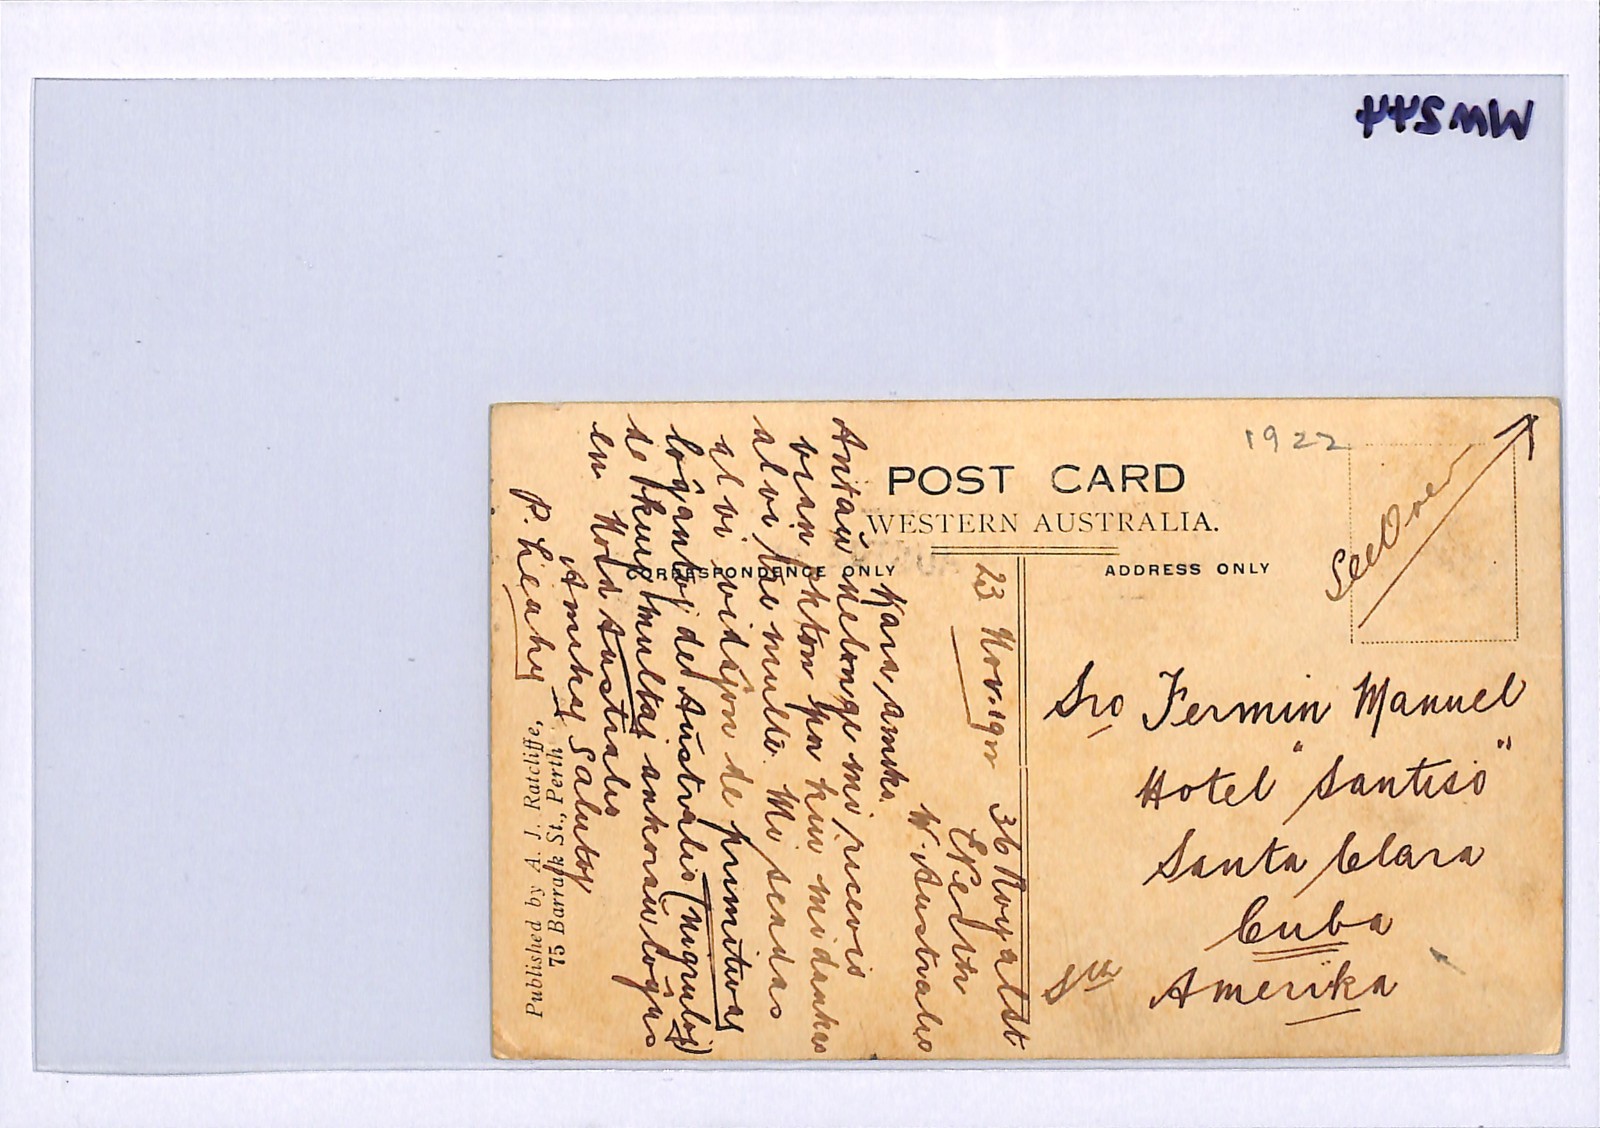 MW544
1922
POST CARD
WESTERN AUSTRALIA.
CORRESPONDENCE ONLY
ADDRESS ONLY
See Over
36 Royal St
E Perth
W. Australio
23 Nov. 192
Kara amiko.
Antaŭ nelonge mi ricevis
vian pkton por kiu mi dankas
al vi tre multe. Mi sendas
al vi vidaĵon de primitivaj
loĝantoj de Australio (nigruloj)
de kiuj multaj ankoraŭ loĝas
en Nord Australio
Amikaj Salutoj
P. Leahy
Published by A. J. Ratcliffe,
75 Barrack St., Perth
Sro Fermin Manuel
Hotel "Santiso"
Santa Clara
Cuba
Sth Amerika